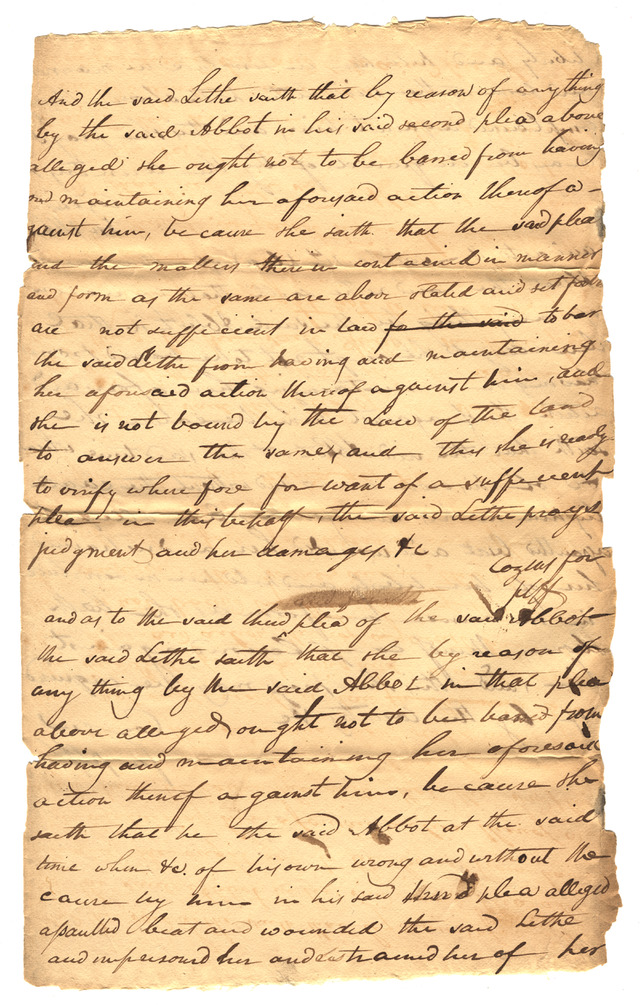 And the said Lethe saith that by reason of anything
by the said Abbot in his said second plea above
alleged she ought not to be barred from having
and maintaining her aforesaid action thereof a-
gainst him, because she saith that the said plea
and the matters therein contained in manner
and form as the same are above stated and set forth
are not sufficient in law for the said to bar
the said Lethe from having and maintaining
her aforesaid action thereof against him, and
she is not bound by the Law of the land
to answer the same, and this she is ready
to verify where fore for want of a suffecient
plea in this behalf, the said Lethe prays
judgment and her damages &c
Cozens for
plff
and as to the said third plea of the said Abbot
the said Lethe saith that she by reason of
any thing by the said Abbot in that plea
above alleged ought not to be barred from
having and maintaining her aforesaid
action thereof against him, because she
saith that he the said Abbot at the said
time when &c. of his own wrong and without the
cause by him in his said third plea alleged
assaulted beat and wounded the said Lethe
and imprisoned her and restrained her of her